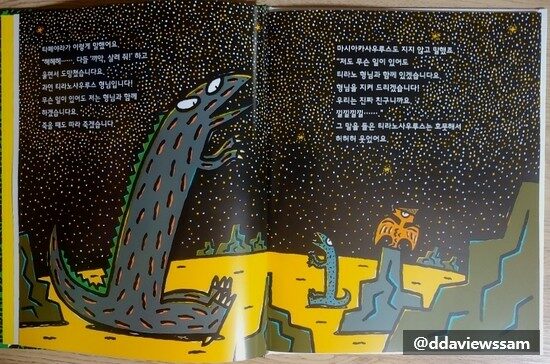 타페야라가 이렇게 말했어요.
"헤헤헤……, 다들 '꺄악, 살려 줘!' 하고
울면서 도망쳤습니다요.
과연 티라노사우루스 형님입니다!
무슨 일이 있어도 저는 형님과 함께
하겠습니다요.
죽을 때도 따라 죽겠습니다."
마시아카사우루스도 지지 않고 말했죠.
"저도 무슨 일이 있어도
티라노 형님과 함께 있겠습니다요.
형님을 지켜 드리겠습니다!
우리는 진짜 친구니까요.
낄낄낄낄……."
그 말을 들은 티라노사우루스는 흐뭇해서
허허허 웃었어요.
@ddaviewssam